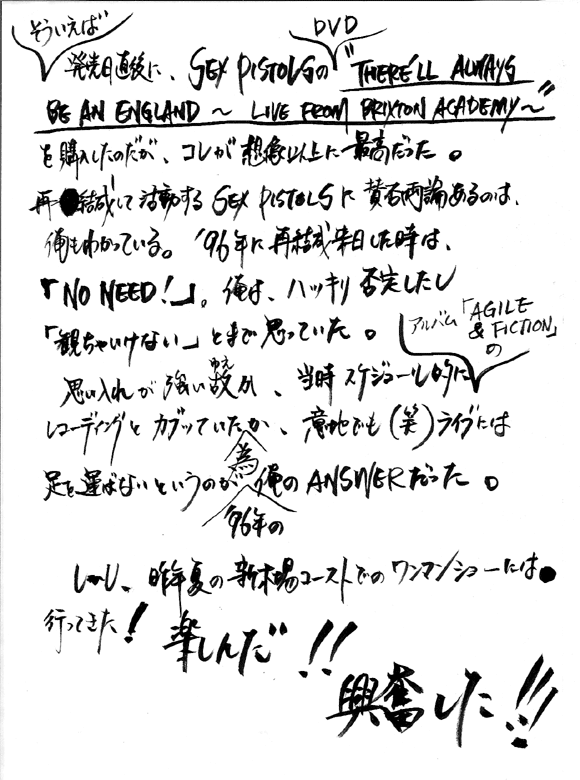 そういえば
DVD
発売日直後に、SEX PISTOLSの"THERE'LL ALWAYS
BE AN ENGLAND 〜 LIVE FROM BRIXTON ACADEMY〜"
を購入したのだが、コレが想像以上に最高だった。
再結成して活動するSEX PISTOLSに賛否両論あるのは、
俺もわかっている。'96年に再結成来日した時は、
「NO NEED!」。俺は、ハッキリ否定したし
「観ちゃいけない」とまで思っていた。
アルバム「AGILE
& FICTION」
の
思い入れが強い故
ゆえ
、当時スケジュール的に
レコーディングとカブッていた
為
、意地でも(笑)ライブには
足を運ばないというのが
'96年の
俺のANSWERだった。
しかし、昨年夏の新木場コーストでのワンマンショーには
行ってきた!
楽しんだ!!
興奮した!!!